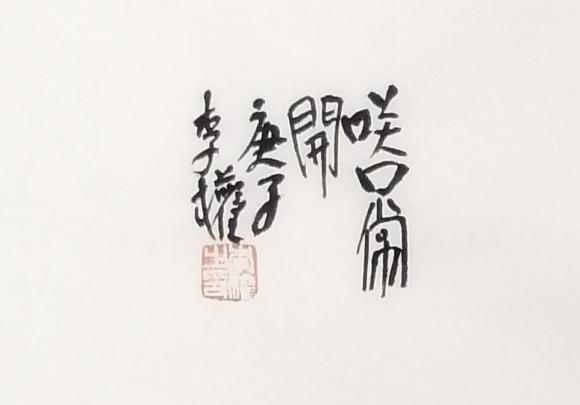 咲口常
開
庚子
李權